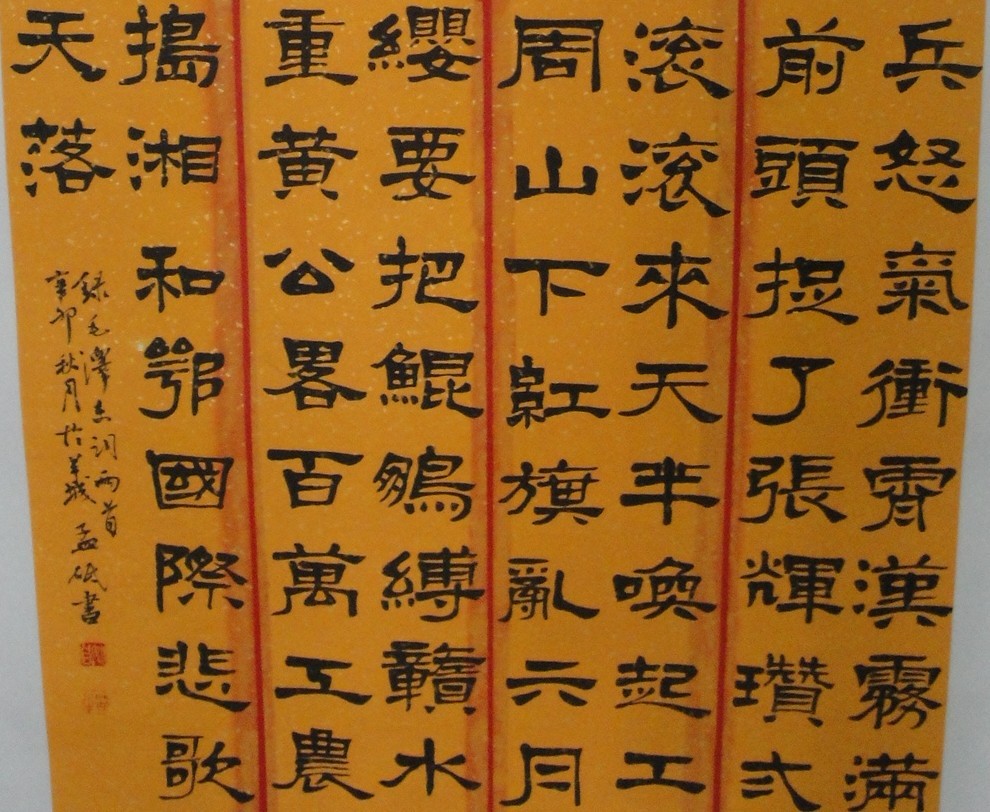 兵怒氣衝霄漢霧滿
前頭捉了張輝瓚弍
滾滾來天半喚起工
周山下紅旗亂六月
纓要把鯤鵬縛贛水
重黃公畧百萬工農
搗湘和鄂國際悲歌
天落
錄毛澤東詞兩首
辛卯秋月於羊城孟砥書